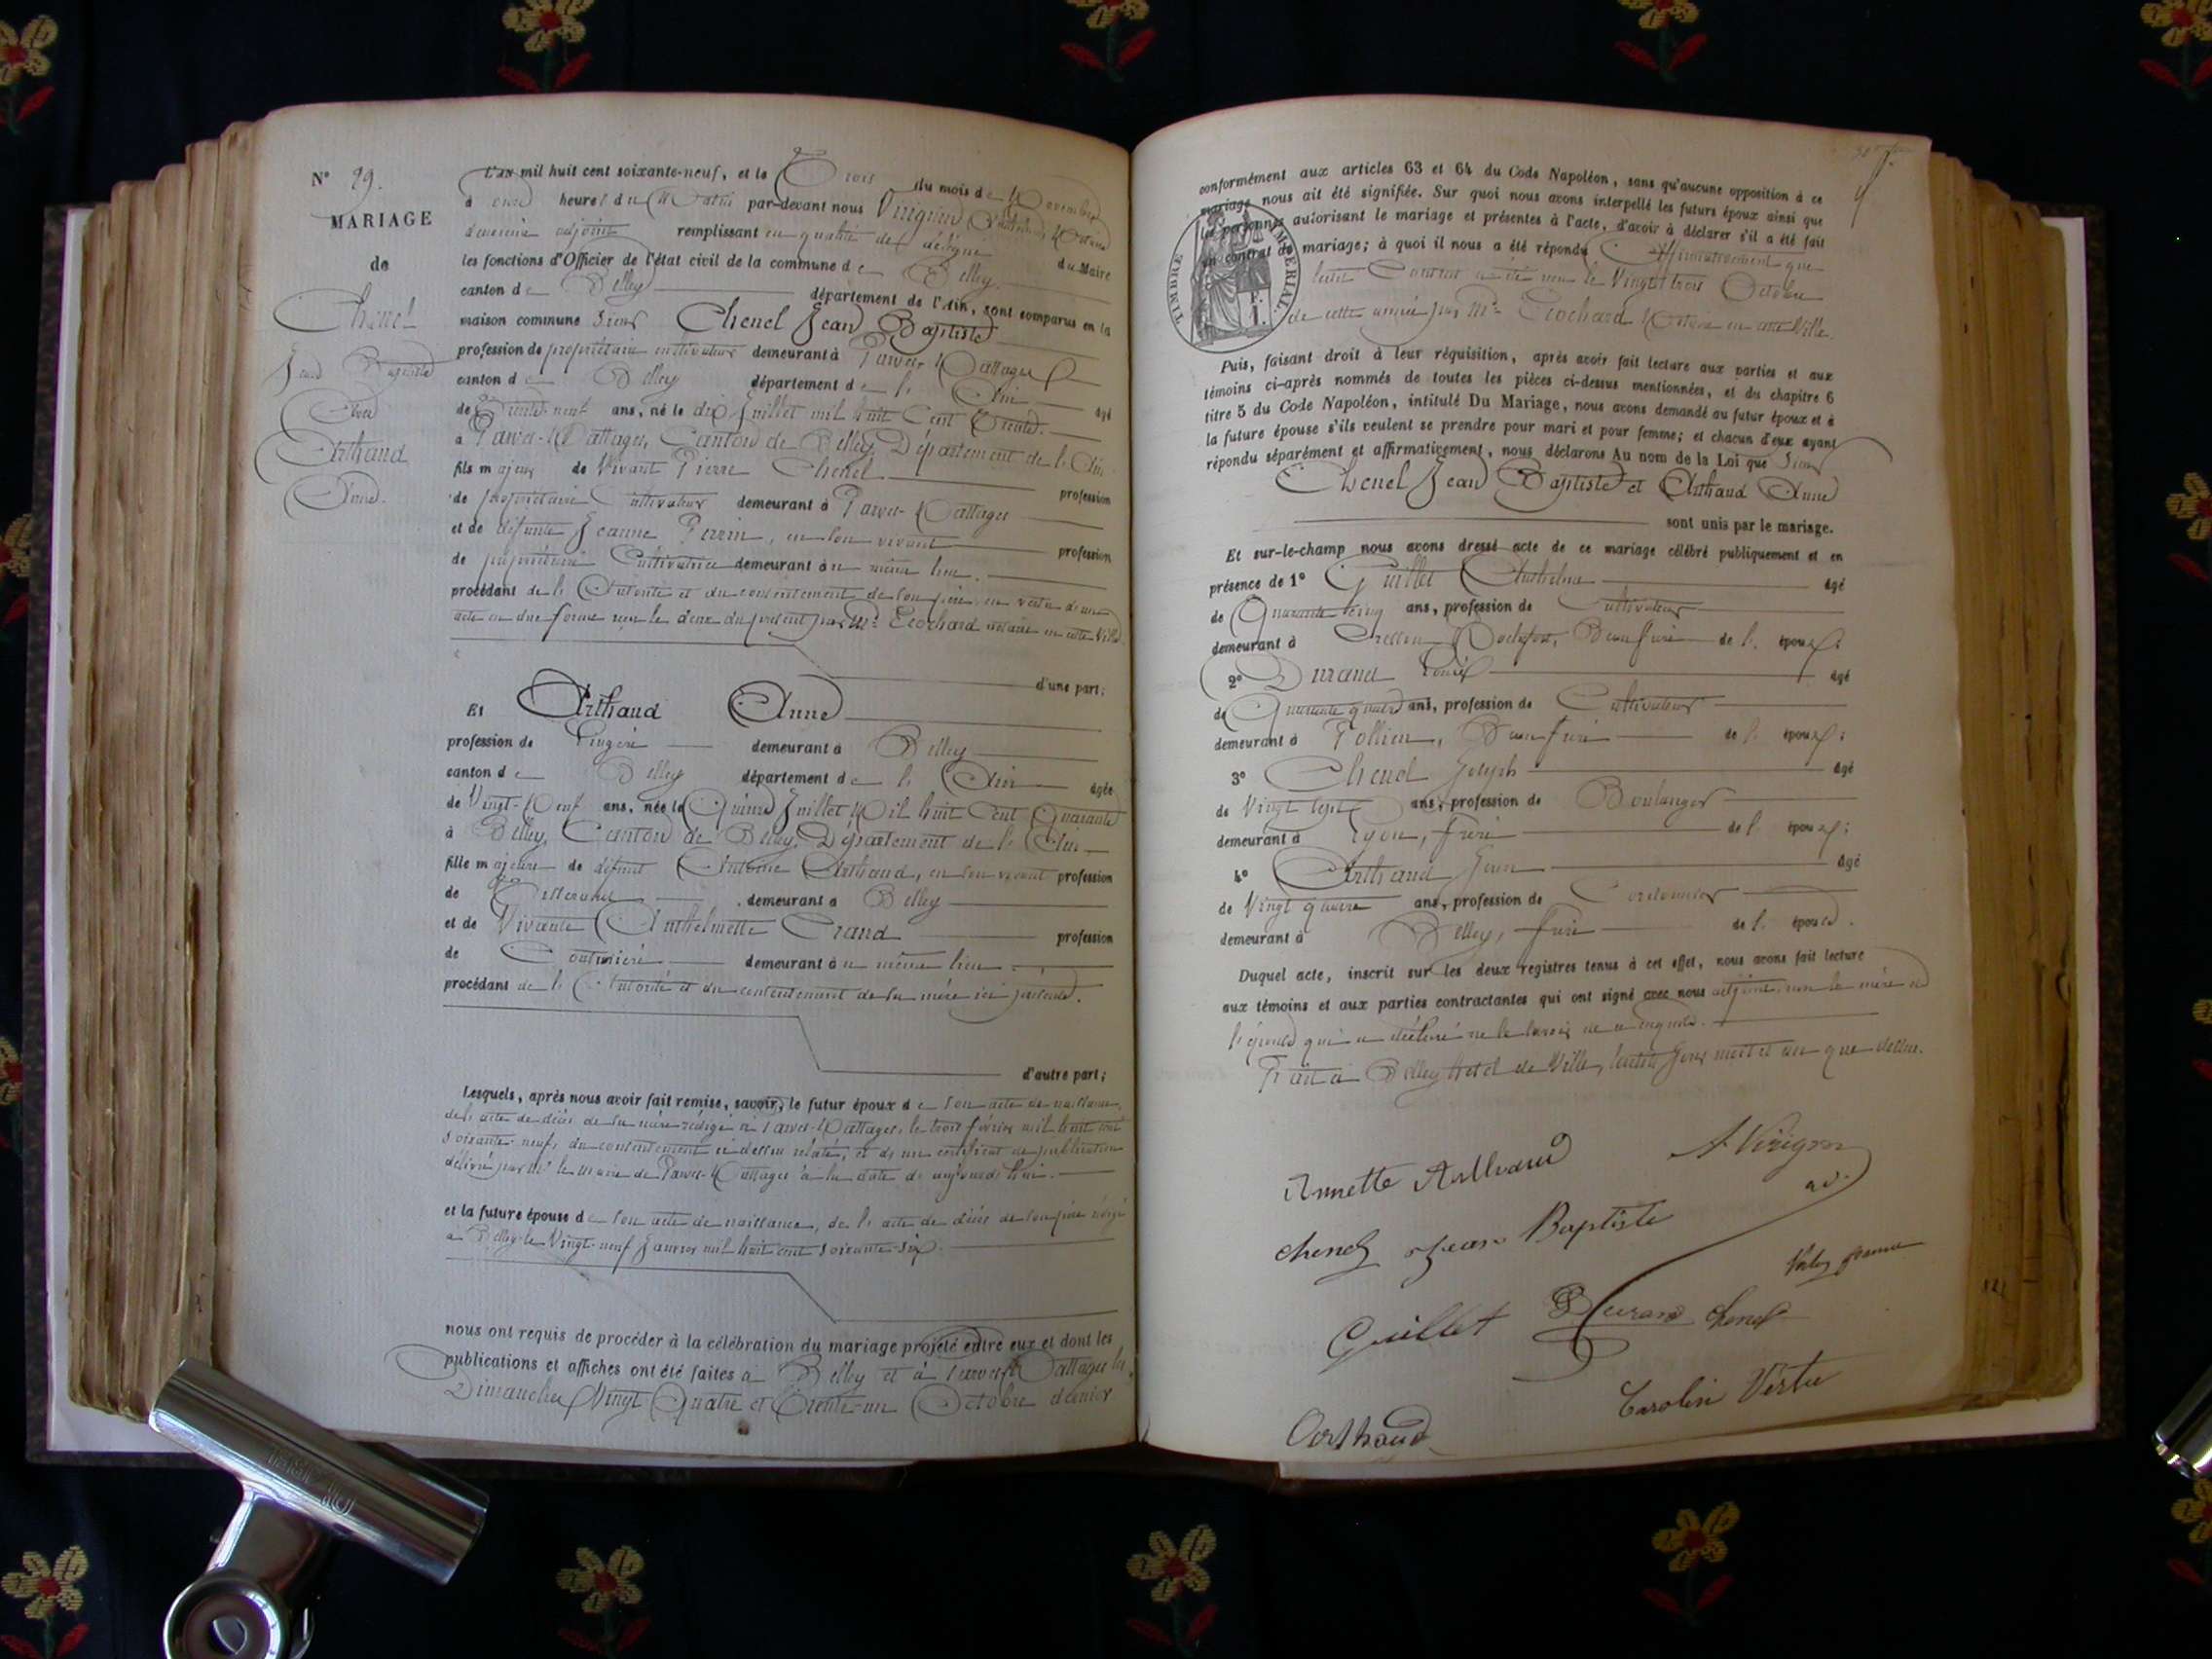 N° 29.
MARIAGE
de
Chenel
Jean Baptiste
Avec
Arthaud
Anne.
L'an mil huit cent soixante-neuf, et le Trois du mois de Novembre
à onze heures du Matin par-devant nous
deuxième adjoint remplissant en qualité de délégué du Maire
les fonctions d'Officier de l'état civil de la commune de Belley
canton de Belley département de l'Ain, sont comparus en la
maison commune Sieur Chenel Jean Baptiste
profession de propriétaire cultivateur demeurant à Parves-Nattages
canton de Belley département de l'Ain âgé
de Trente-neuf ans, né le dix Juillet mil huit Cent Trente.
à Parves-Nattages, Canton de Belley, Département de l'Ain
fils majeur de Vivant Pierre Chenel profession
de propriétaire Cultivateur demeurant à Parves-Nattages
et de défunte Jeanne Perrin, en son vivant profession
de propriétaire Cultivatrice demeurant au même lieu.
procédant de l'Autorité et du consentement de son père, en vertu d'un
acte en due forme reçu le deux du présent par Me Ecochard notaire en cette Ville
d'une part;
Et Arthaud Anne
profession de Lingère demeurant à Belley
canton de Belley département de l'Ain âgée
de Vingt-Neuf ans, née le Quinze Juillet Mil huit Cent Quarante
à Belley, Canton de Belley, Département de l'Ain
fille majeure de défunt Antoine Arthaud, en son vivant profession
de Tisserand demeurant à Belley
et de Vivante Anthelmette Crand profession
de Couturière demeurant au même lieu.
procédant de l'Autorité et du consentement de sa mère ici présente.
d'autre part;
Lesquels, après nous avoir fait remise, savoir, le futur époux de son acte de naissance,
de l'acte de décès de sa mère rédigé à Parves-Nattages, le trois février mil huit cent
soixante-neuf, du consentement ci-dessus relaté, et d'un certificat de publication
délivré par Mr le Maire de Parves-Nattages à la date d'aujourd'hui.
et la future épouse de son acte de naissance, de l'acte de décès de son père rédigé
à Belley le Vingt-neuf Janvier mil huit cent soixante-six.
nous ont requis de procéder à la célébration du mariage projeté entre eux et dont les
publications et affiches ont été faites à Belley et à Parves-Nattages les
Dimanches Vingt Quatre et Trente-un Octobre dernier
conformément aux articles 63 et 64 du Code Napoléon, sans qu'aucune opposition à ce
mariage nous ait été signifiée. Sur quoi nous avons interpellé les futurs époux ainsi que
les personnes autorisant le mariage et présentes à l'acte, d'avoir à déclarer s'il a été fait
un contrat de mariage; à quoi il nous a été répondu Affirmativement que
ledit Contrat a été reçu le Vingt trois Octobre
de cette année par Me Ecochard Notaire en cette Ville.
TIMBRE IMPERIAL
1 F.
Puis, faisant droit à leur réquisition, après avoir fait lecture aux parties et aux
témoins ci-après nommés de toutes les pièces ci-dessus mentionnées, et du chapitre 6
titre 5 du Code Napoléon, intitulé Du Mariage, nous avons demandé au futur époux et à
la future épouse s'ils veulent se prendre pour mari et pour femme; et chacun d'eux ayant
répondu séparément et affirmativement, nous déclarons Au nom de la Loi que Sieur
Chenel Jean Baptiste et Arthaud Anne
sont unis par le mariage.
Et sur-le-champ nous avons dressé acte de ce mariage célébré publiquement et en
présence de 1° Guillet Anthelme âgé
de Quarante cinq ans, profession de Cultivateur
demeurant à Beau frère de l'époux;
2° Durand Louis âgé
de Quarante quatre ans, profession de Cultivateur
demeurant à Pollieu, Beau frère de l'époux;
3° Chenel Joseph âgé
de Vingt sept ans, profession de Boulanger
demeurant à Lyon, frère de l'époux;
4° Arthaud Jean âgé
de Vingt quatre ans, profession de Cordonnier
demeurant à Belley, frère de l'épouse.
Duquel acte, inscrit sur les deux registres tenus à cet effet, nous avons fait lecture
aux témoins et aux parties contractantes qui ont signé avec nous adjoint, non la mère de
l'épouse qui a déclaré ne le savoir de ce enquise.
Fait à Belley hôtel de Ville, lesdits Jour mois et an que dessus.
Annette Arthaud
chenel Jean Baptiste
Guillet Durand chenel
Carolin Vertu
Arthaud